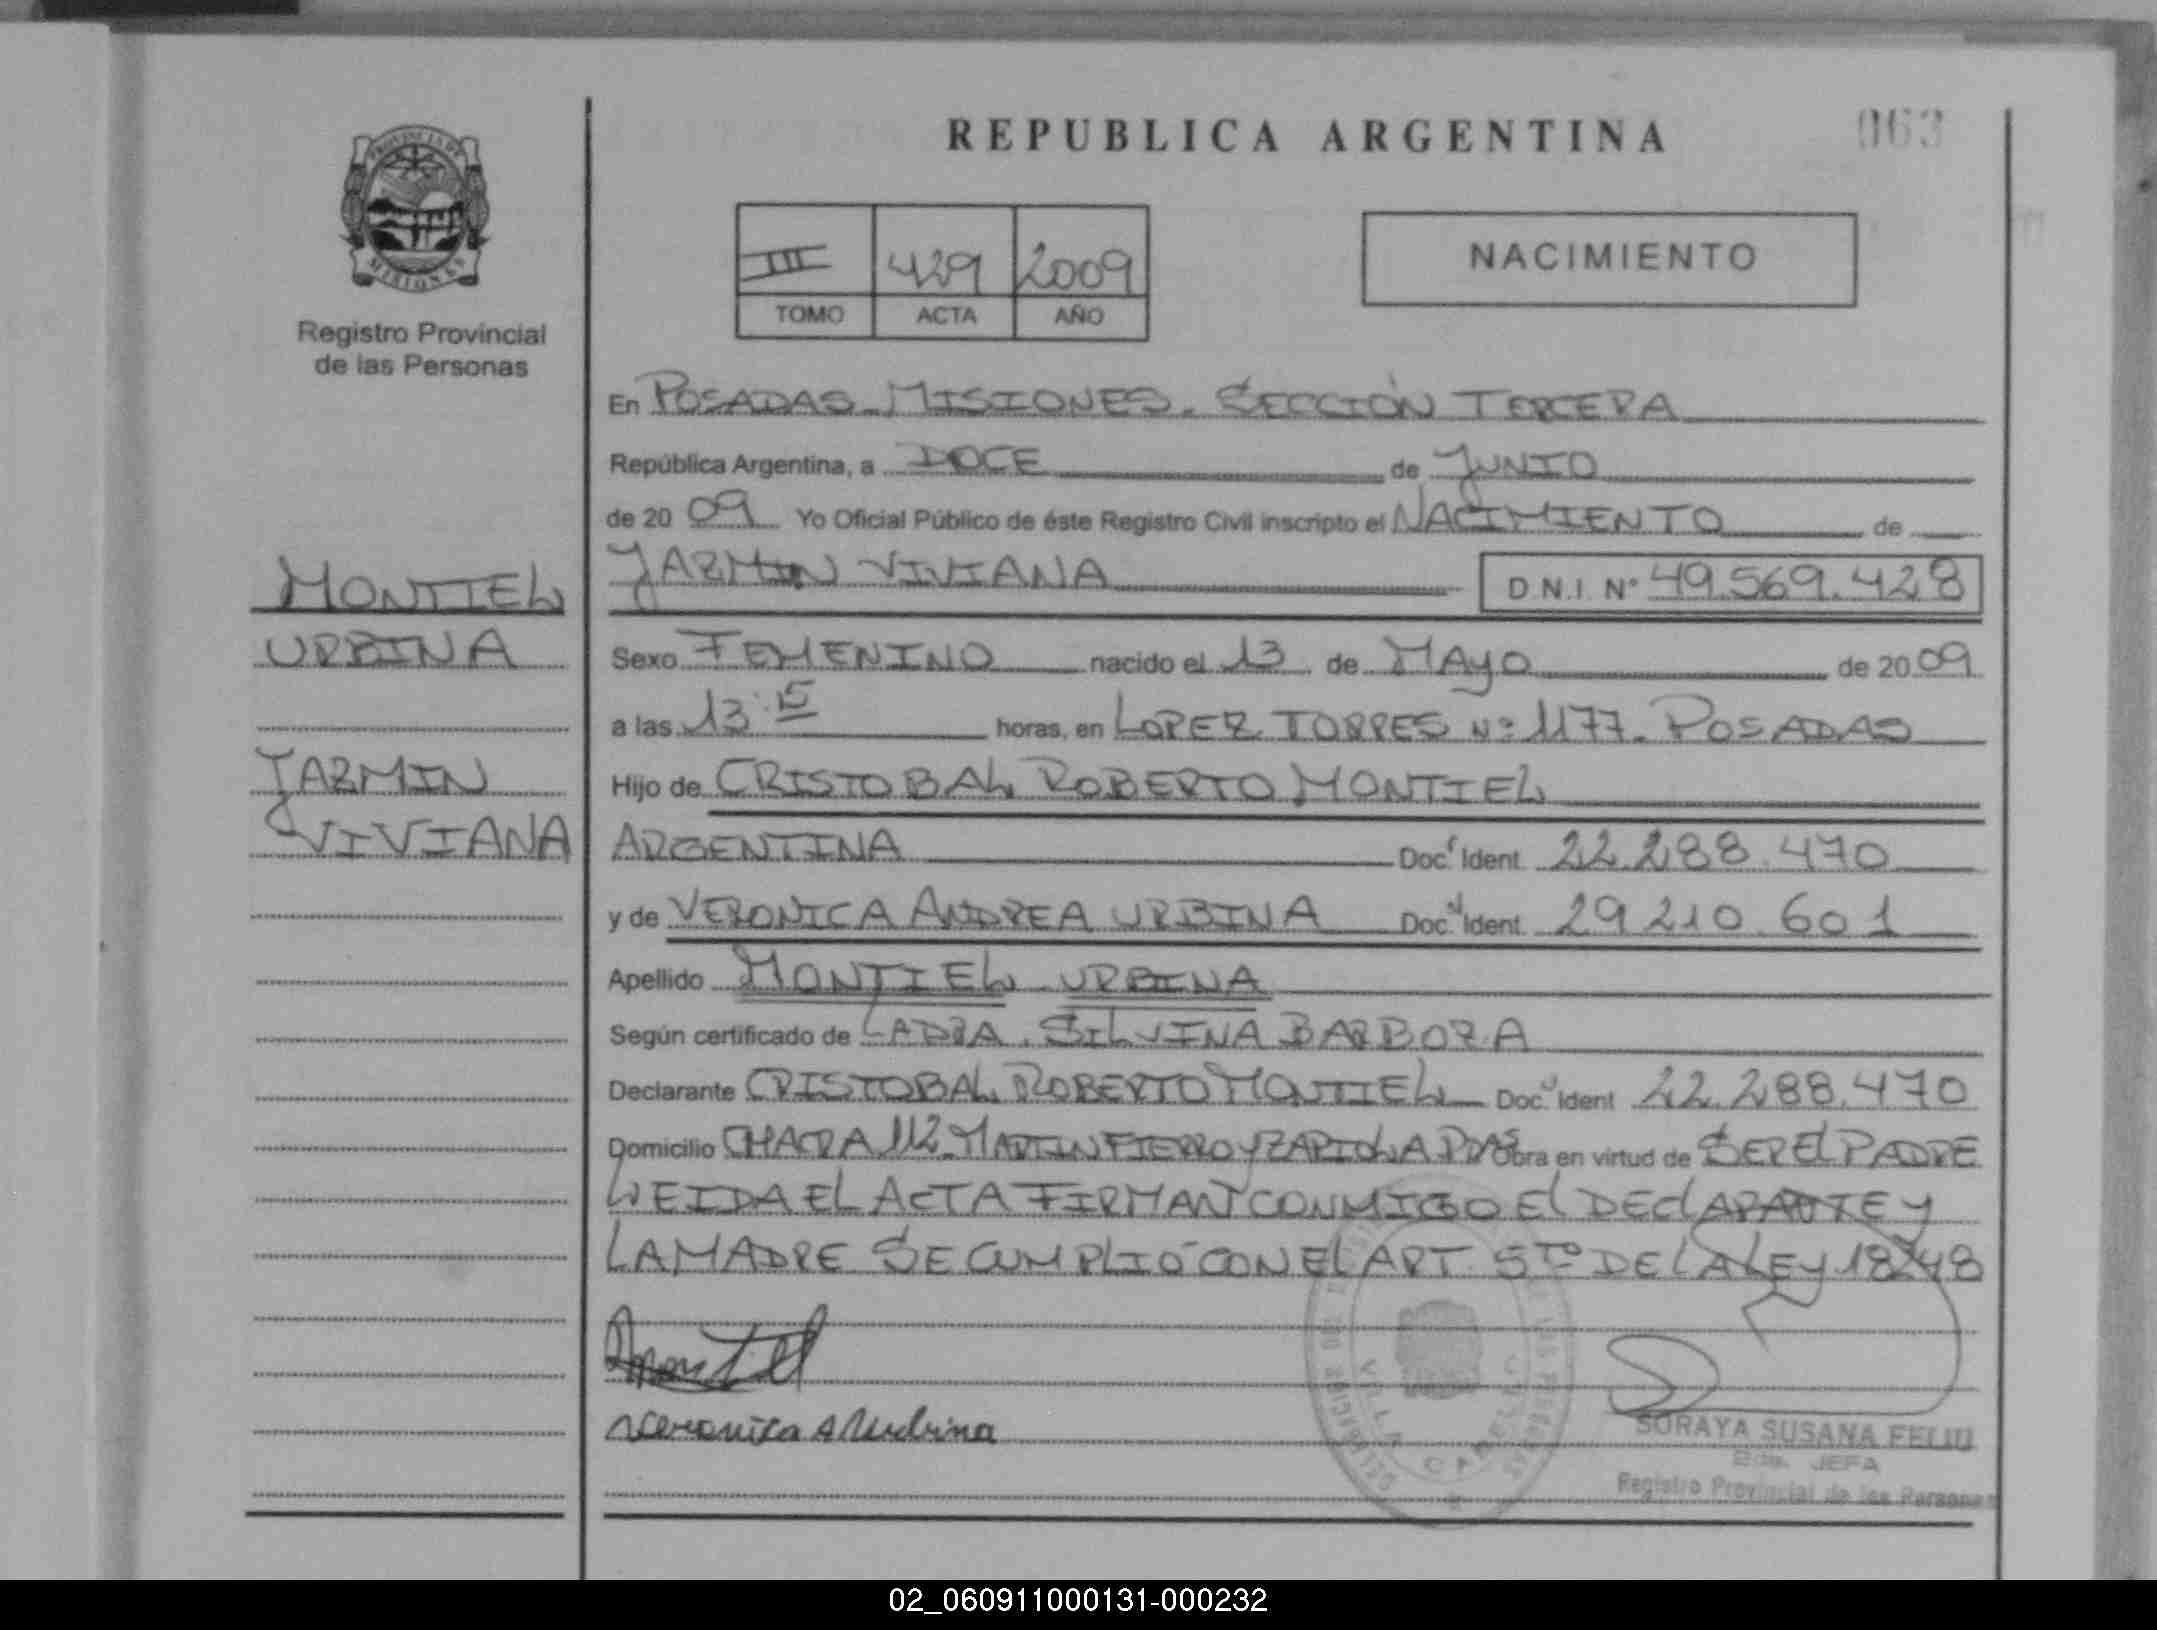 REPUBLICA ARGENTINA
063
PROVINCIA DE
MISIONES
Registro Provincial
de las Personas
III 429 2009
TOMO ACTA AÑO
NACIMIENTO
En POSADAS - MISIONES - SECCIÓN TERCERA
República Argentina, a DOCE de JUNIO
de 20 09 Yo Oficial Público de éste Registro Civil inscripto el NACIMIENTO de
YAZMIN VIVIANA D.N.I. Nº 49.569.428
MONTIEL
URBINA
YAZMIN
VIVIANA
Sexo FEMENINO nacido el 13 de MAYO de 20 09
a las 13:15 horas, en LOPEZ TORRES Nº 1177 - POSADAS
Hijo de CRISTOBAL ROBERTO MONTIEL
ARGENTINA Doc. Ident. 22.288.470
y de VERONICA ANDREA URBINA Doc. Ident. 29.210.601
Apellido MONTIEL URBINA
Según certificado de LA DRA. SILVINA BARBOZA
Declarante CRISTOBAL ROBERTO MONTIEL Doc. Ident 22.288.470
Domicilio CHACRA 112 - MARTIN FIERRO Y ZAPIOLA PDAS Obra en virtud de SER EL PADRE
LEIDA EL ACTA FIRMAN CONMIGO EL DECLARANTE Y
LA MADRE SE CUMPLIÓ CON EL ART 5to DE LA LEY 18248
Montiel
Veronica A Urbina
VILLA CABELLO
SORAYA SUSANA FELIU
2da. JEFA
Registro Provincial de las Personas
02_060911000131-000232